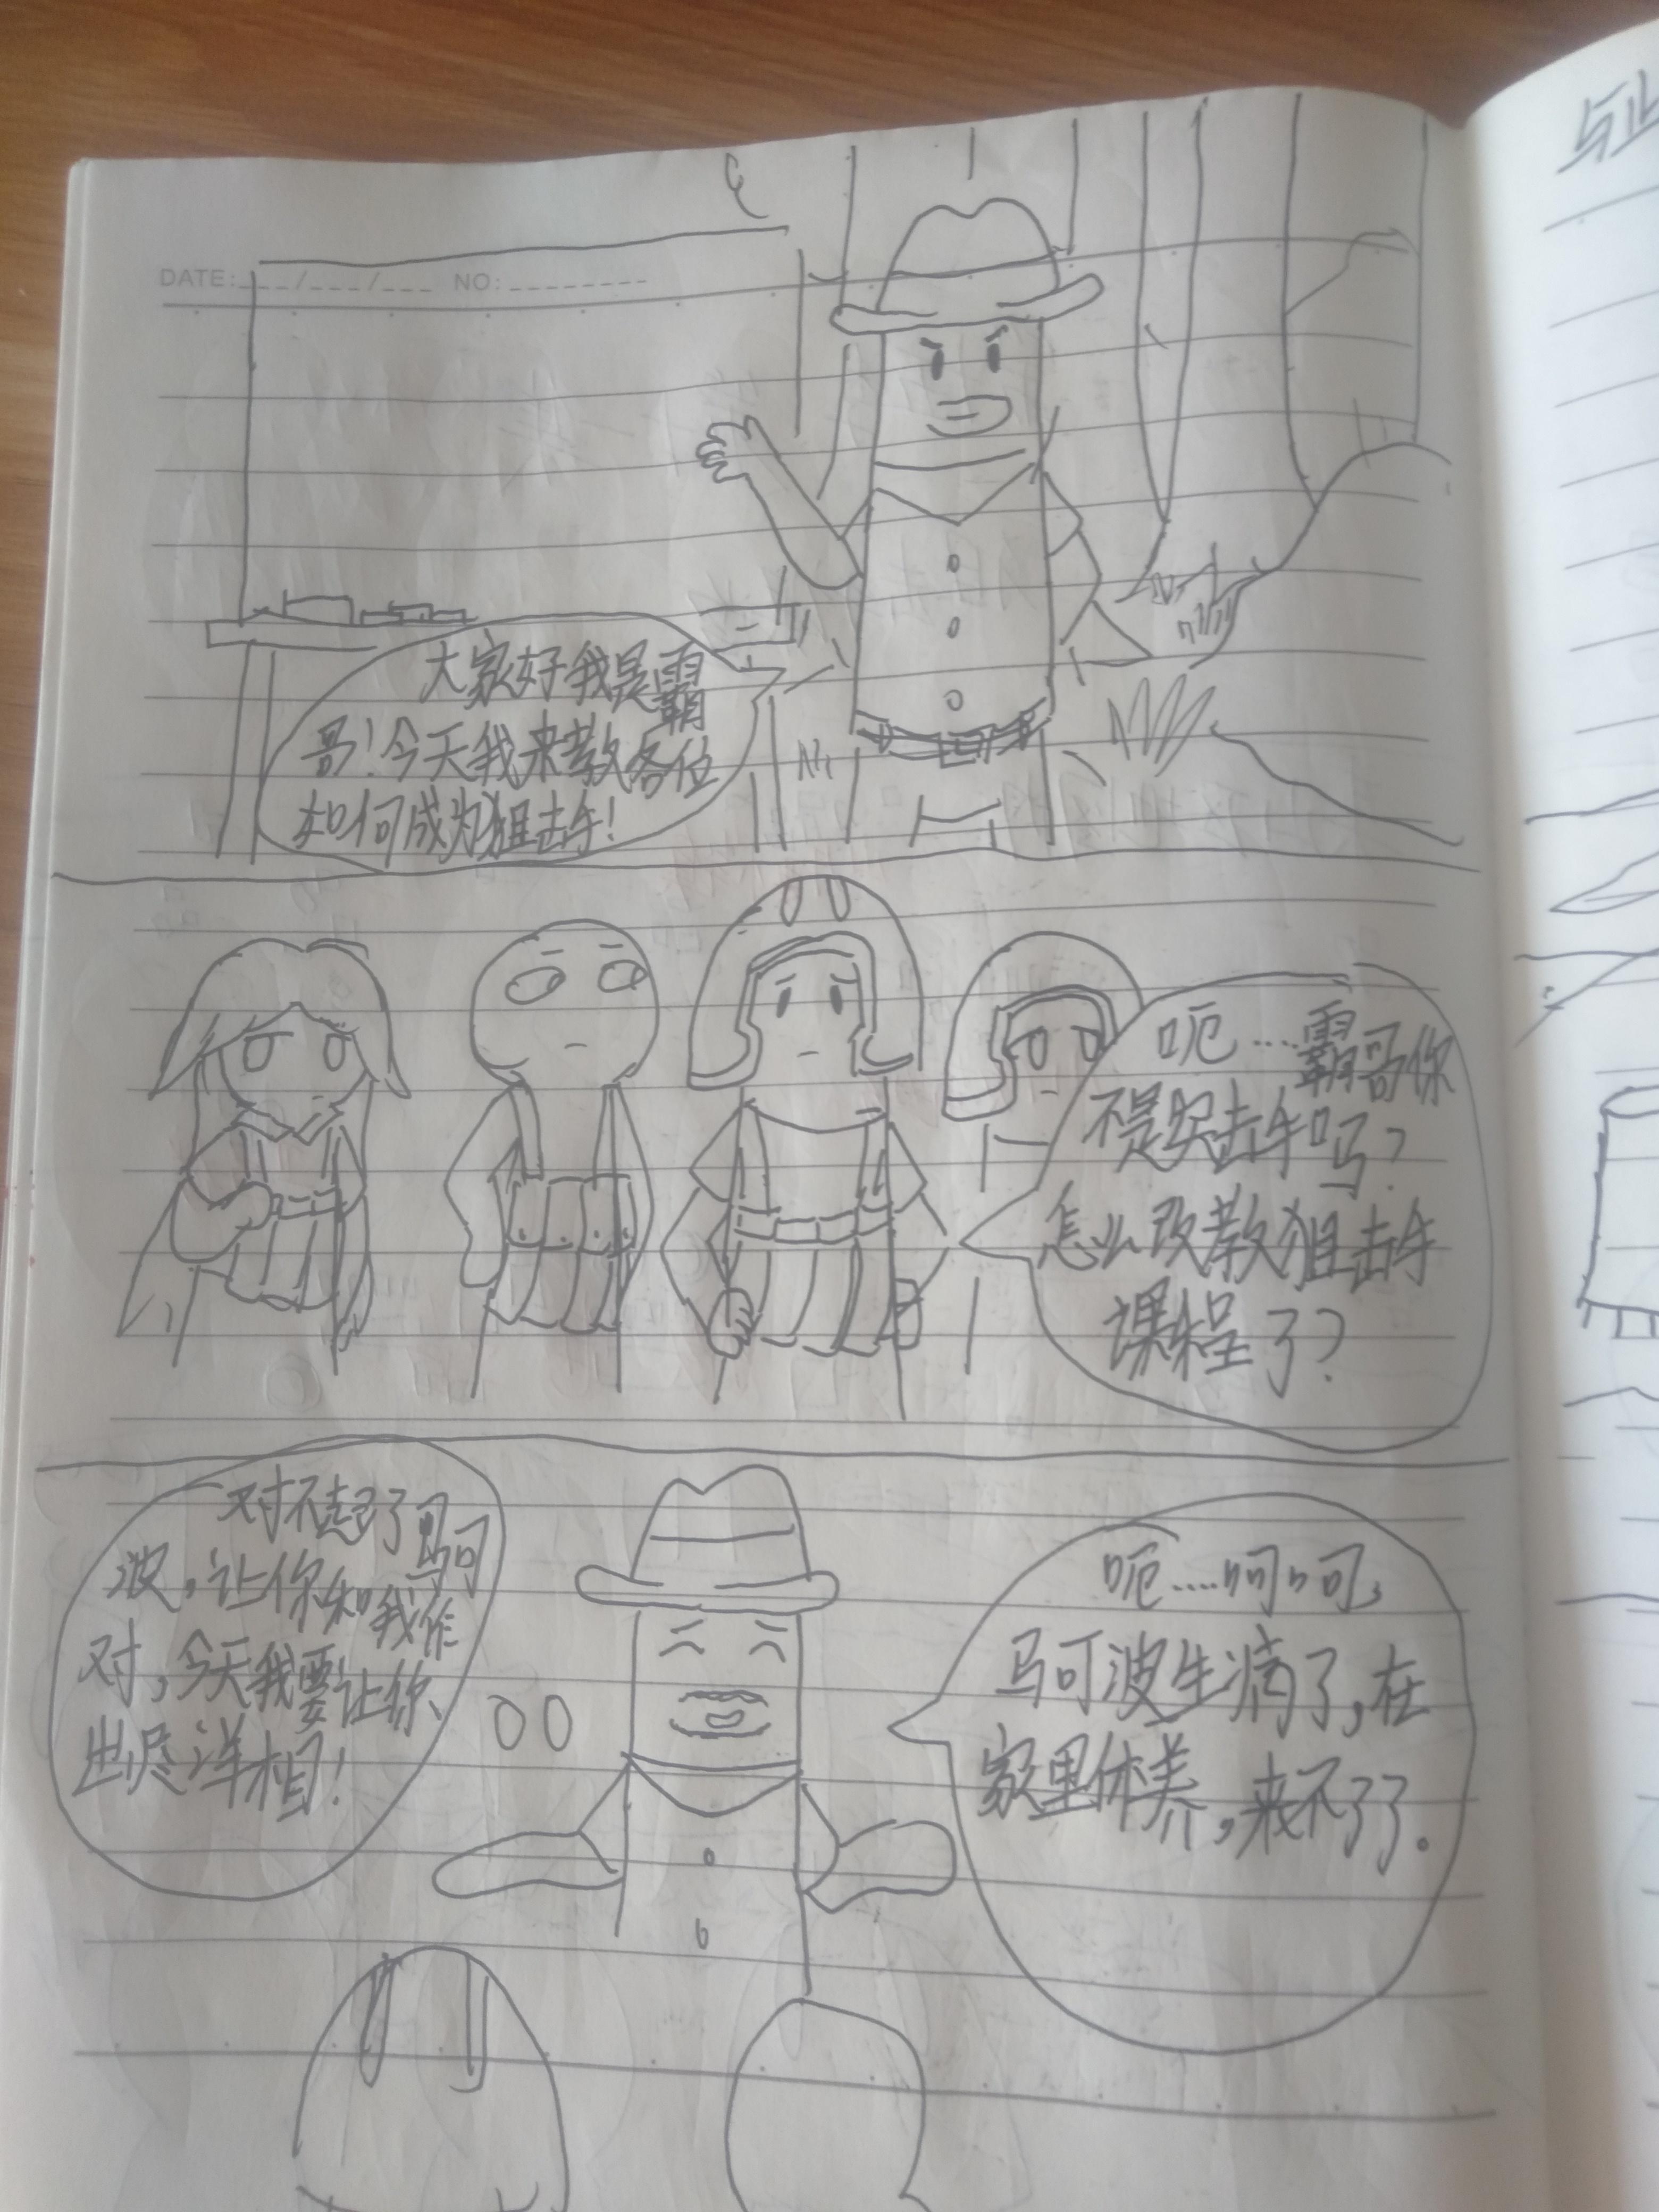 DATE:___/___/___ NO:________
大家好我是霸
哥！今天我来教各位
如何成为狙击手！
呃……霸哥你
不是突击手吗？
怎么改教狙击手
课程了？
对不起了马可
波，让你和我作
对，今天我要让你
出尽洋相！
呃……呵呵，
马可波生病了，在
家里休养，来不了了。